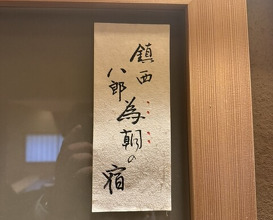 鎮西
八郎為朝の
宿